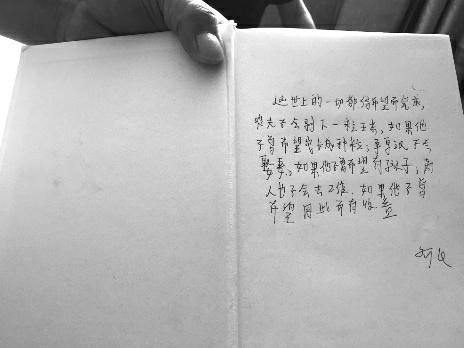 这世上的一切都借希望而完成,
农夫不会剥下一粒玉米, 如果他
不曾希望它长成种粒; 单身汉不会
娶妻, 如果他不曾希望有孩子; 商
人也不会去工作, 如果他不曾
希望因此而有收益